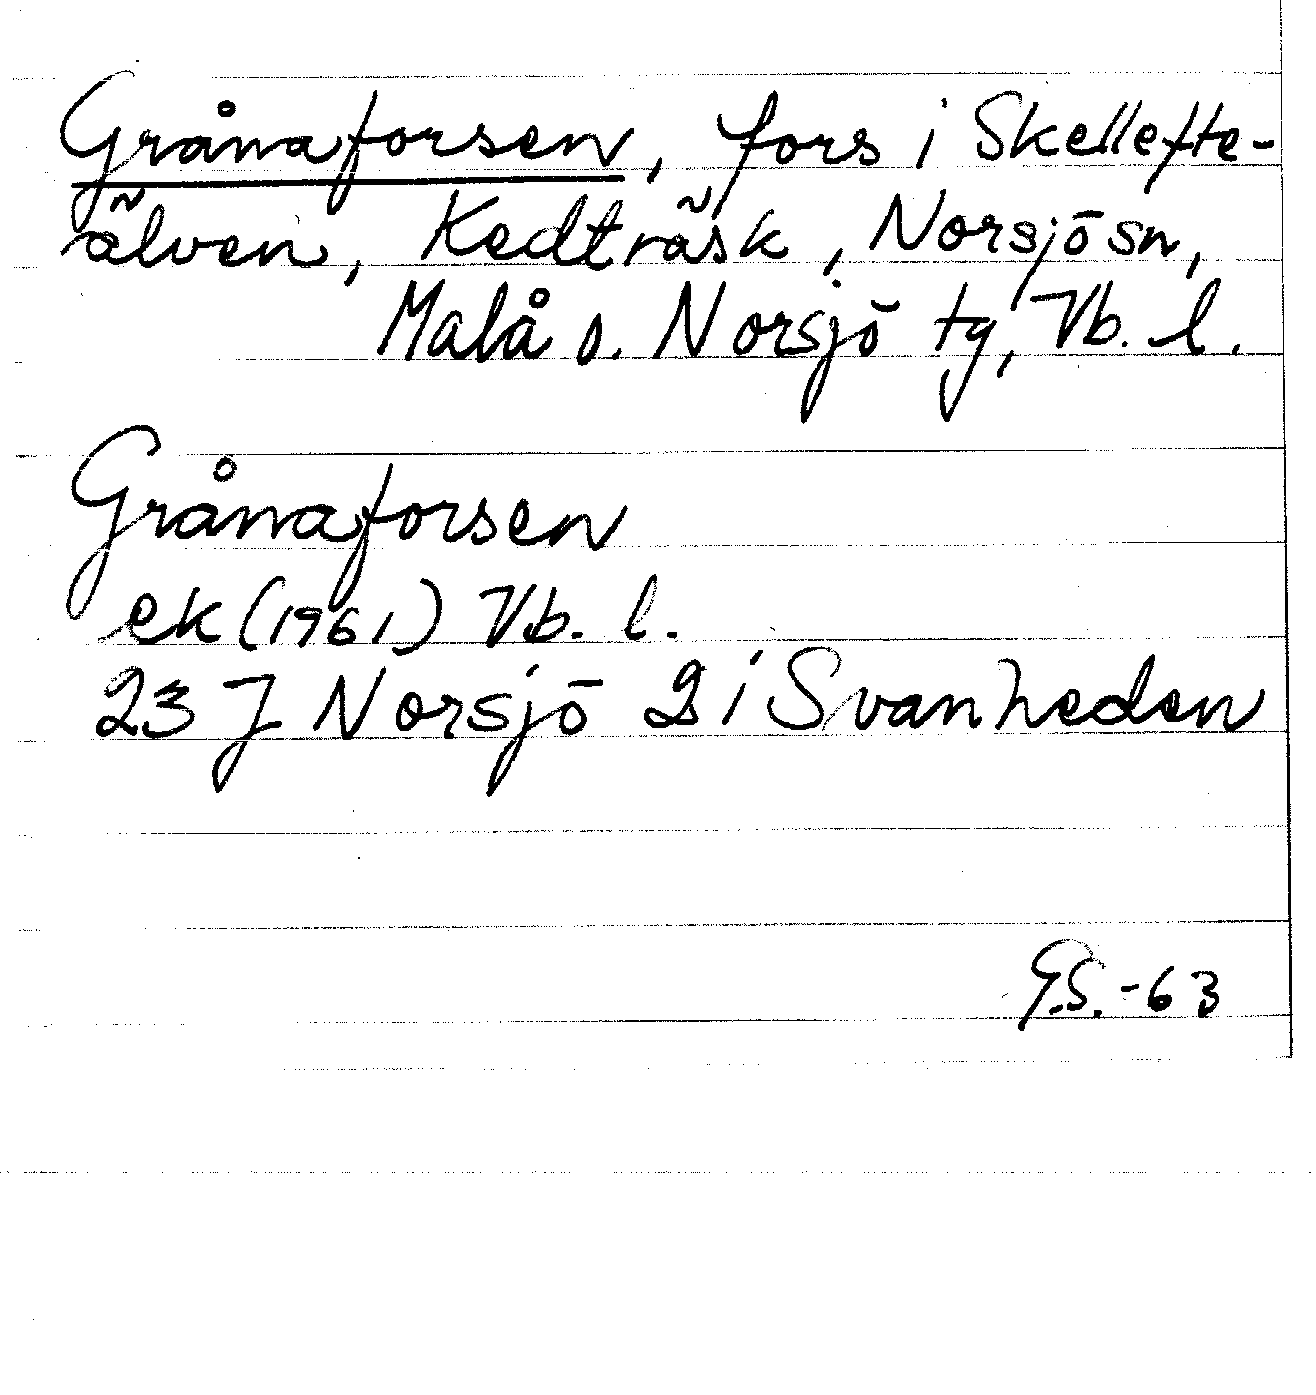 Grånaforsen, fors i Skellefte-
älven, Kedträsk, Norsjö sn,
Malå o. Norsjö tg, Vb. l.
Grånaforsen
ek (1961) Vb. l.
23 J Norsjö 2 i Svanheden
G.S. -63